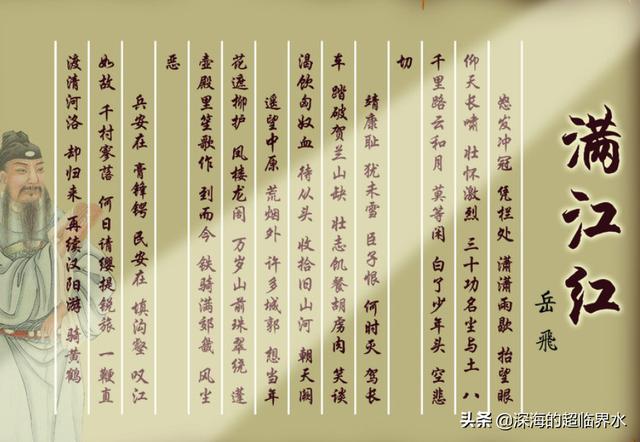 满江红
岳飛
怒发冲冠 凭栏处 潇潇雨歇 抬望眼
仰天长啸 壮怀激烈 三十功名尘与土 八
千里路云和月 莫等闲 白了少年头 空悲
切
靖康耻 犹未雪 臣子恨 何时灭 驾长
车 踏破贺兰山缺 壮志饥餐胡虏肉 笑谈
渴饮匈奴血 待从头 收拾旧山河 朝天阙
遥望中原 荒烟外 许多城郭 想当年
花遮柳护 凤楼龙阁 万岁山前珠翠绕 蓬
壶殿里笙歌作 到而今 铁骑满郊畿 风尘
恶
兵安在 膏锋锷 民安在 填沟壑 叹江
如故 千村寥落 何日请缨提锐旅 一鞭直
渡清河洛 却归来 再续汉阳游 骑黄鹤
头条 @深海的超临界水